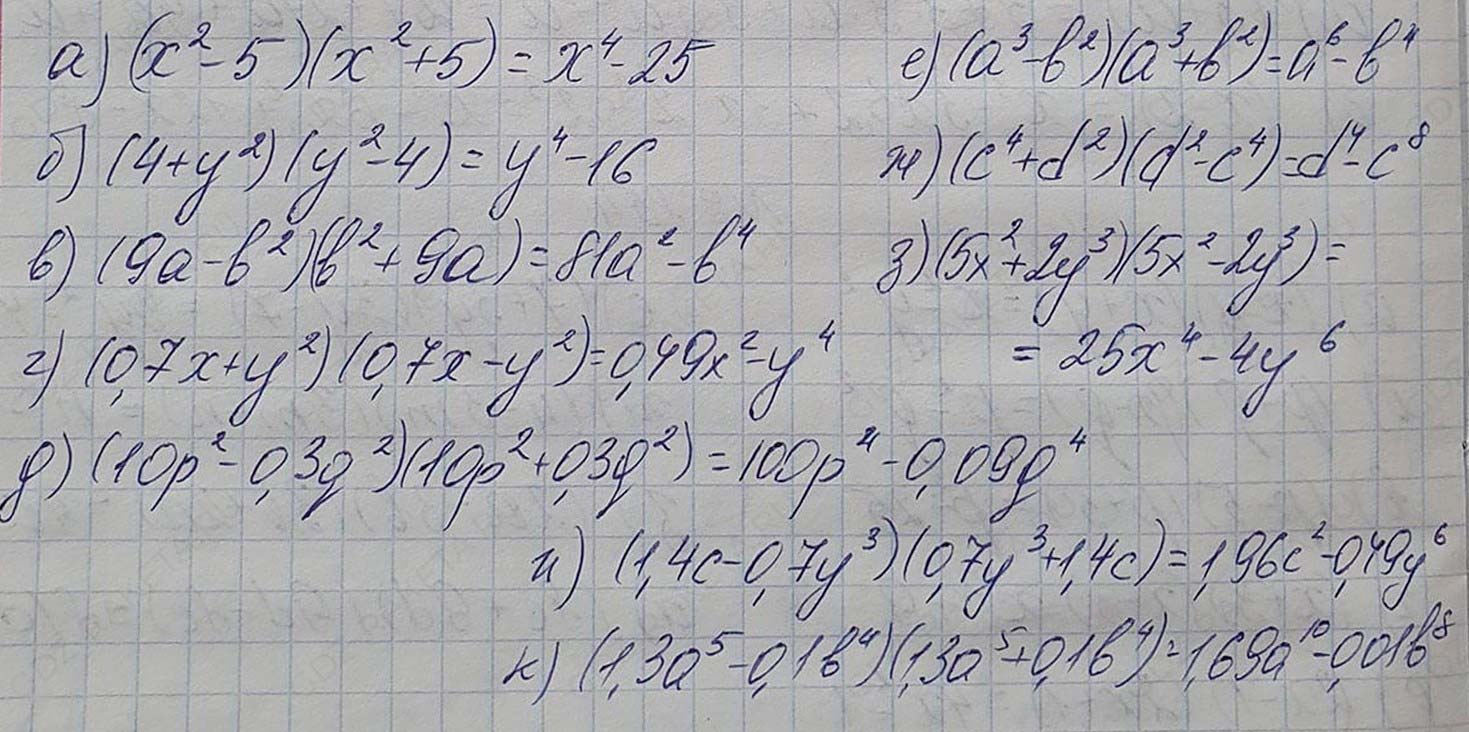 а) (x²-5)(x²+5)=x⁴-25
б) (4+y²)(y²-4)=y⁴-16
в) (9a-b²)(b²+9a)=81a²-b⁴
г) (0,7x+y²)(0,7x-y²)=0,49x²-y⁴
д) (10p²-0,3q²)(10p²+0,3q²)=100p⁴-0,09q⁴
е) (a³-b²)(a³+b²)=a⁶-b⁴
ж) (c⁴+d²)(d²-c⁴)=d⁴-c⁸
з) (5x²+2y³)(5x²-2y³)=
= 25x⁴-4y⁶
и) (1,4c-0,7y³)(0,7y³+1,4c)=1,96c²-0,49y⁶
к) (1,3a⁵-0,1b⁴)(1,3a⁵+0,1b⁴)=1,69a¹⁰-0,01b⁸